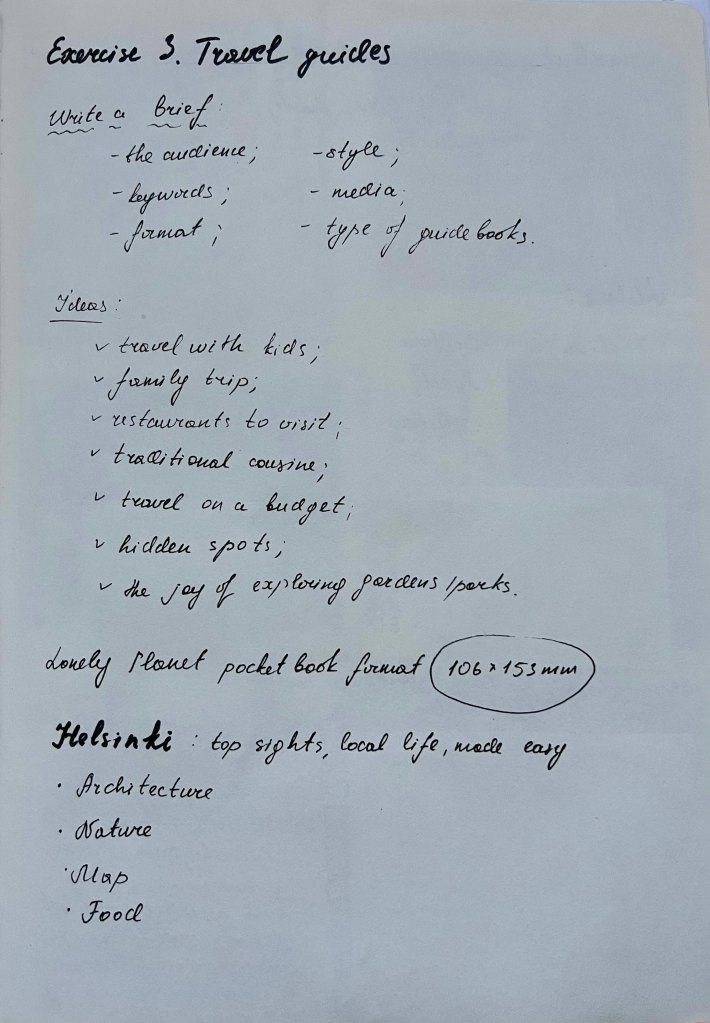 Exercise 3. Travel guides
Write a Brief:
- the audience; - style;
- keywords; - media;
- format; - type of guide books.
Ideas:
✓ travel with kids;
✓ family trip;
✓ restaurants to visit;
✓ traditional cousine;
✓ travel on a budget;
✓ hidden spots;
✓ the joy of exploring gardens/parks.
Lonely Planet pocket book format 106 × 153 mm
Helsinki: top sights, local life, made easy
· Architecture
· Nature
· Map
· Food